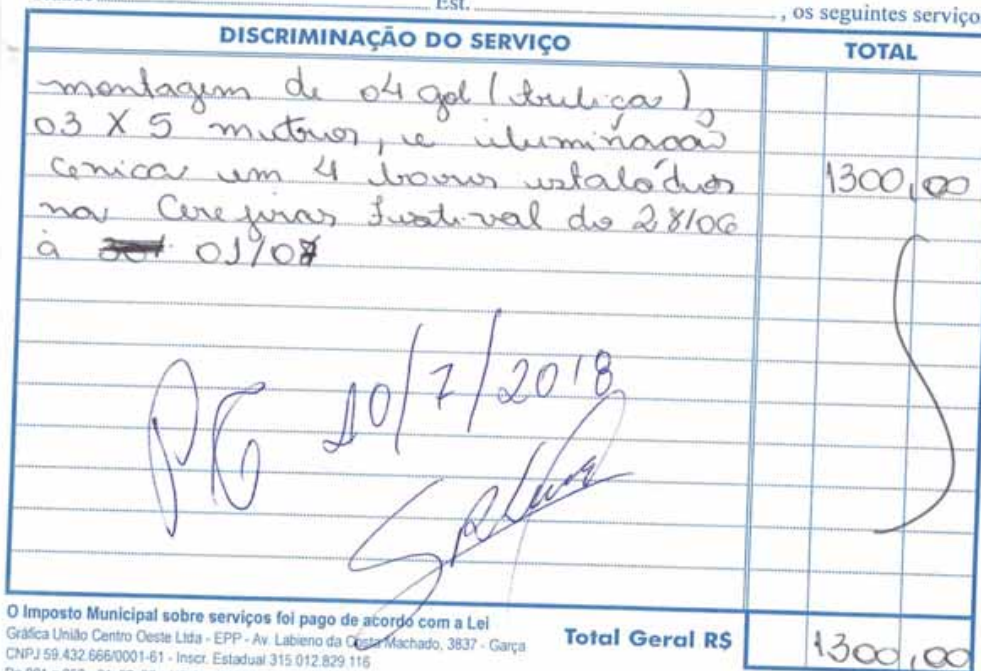 Est. , os seguintes serviço
DISCRIMINAÇÃO DO SERVIÇO TOTAL
montagem de 04 gol (treliça)
03 X 5 metros, e iluminação
cenica em 4 1300,00
na Cerejeiras Festival do 28/06
à 01/07
PG 10/7/2018
O Imposto Municipal sobre serviços foi pago de acordo com a Lei
Gráfica União Centro Oeste Ltda - EPP - Av. Labieno da Costa Machado, 3837 - Garça
CNPJ 59.432.666/0001-61 - Inscr. Estadual 315.012.829.116
Total Geral R$ 1300,00